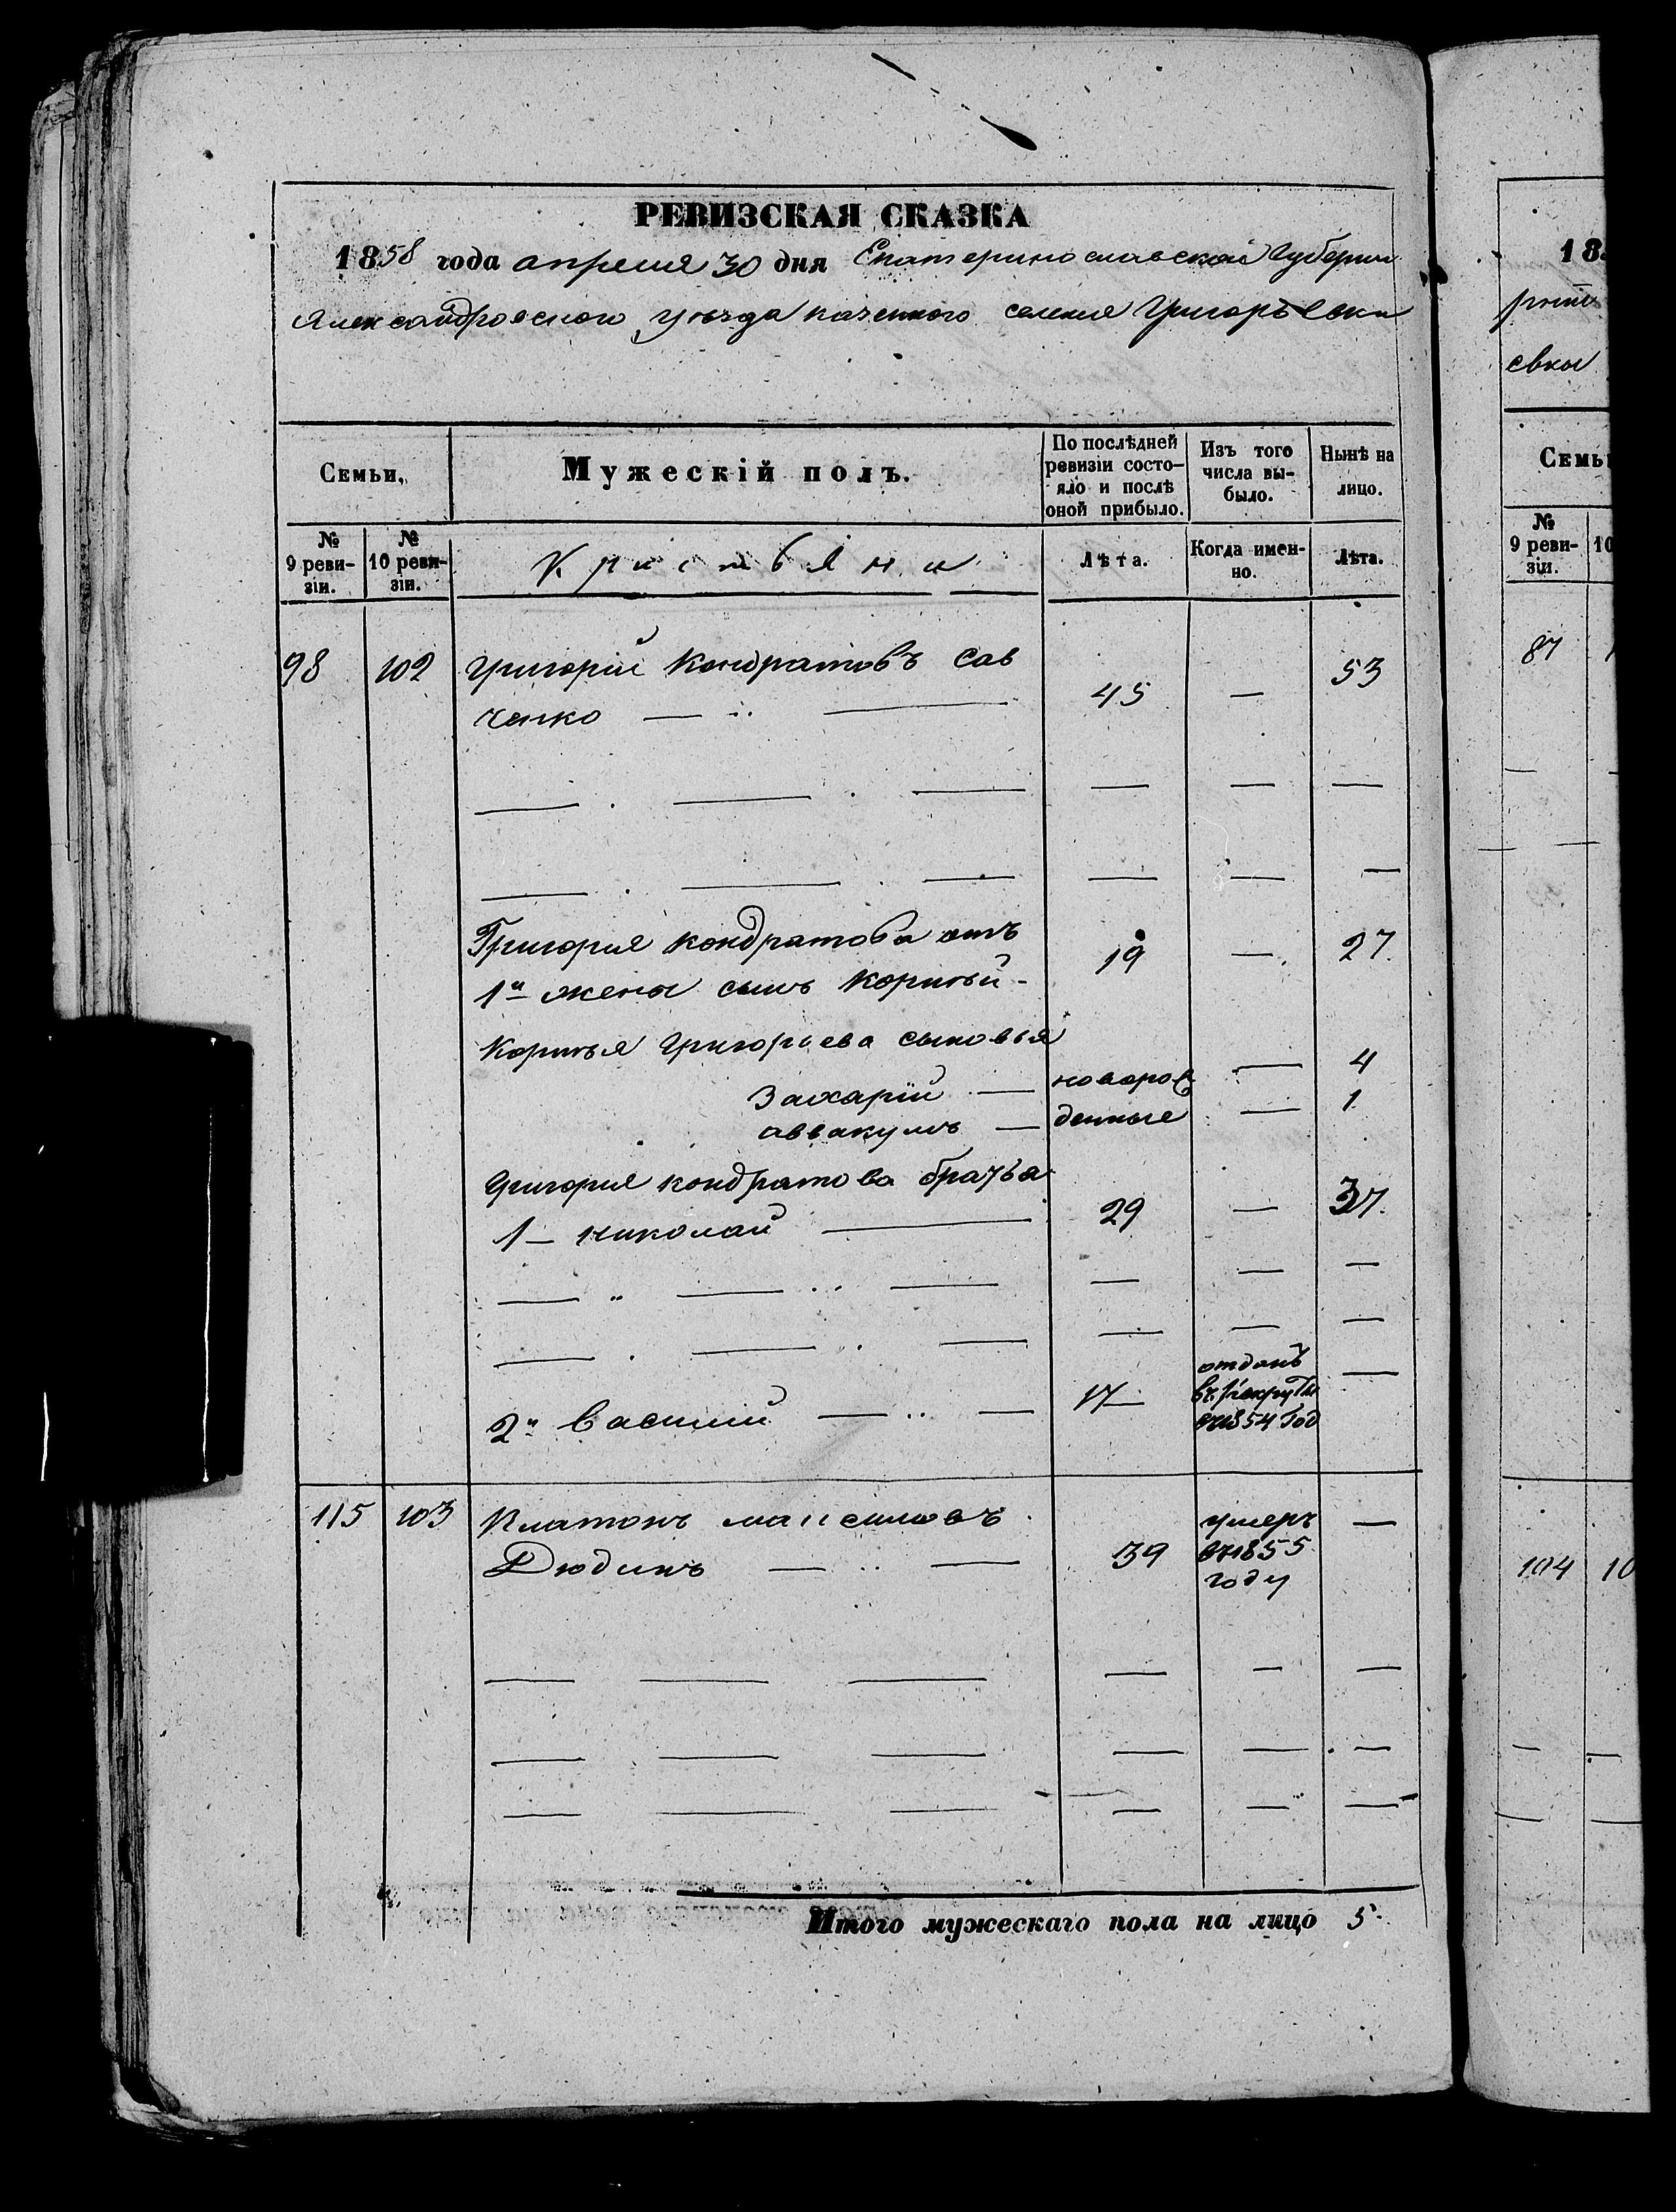 РЕВИЗСКАЯ СКАЗКА
1858 года апреля 30 дня Екатеринославской Губернии
Александровского уѣзда казенного селения Григорьевки
Семьи.
Мужескій полъ.
По послѣдней ревизіи состо-
яло и послѣ
оной прибыло.
Изъ того
числа вы-
было.
Нынѣ на
лицо.
№
9 реви-
зіи.
№
10 реви-
зіи.
Кристьяни
Лѣта.
Когда имен-
но.
Лѣта.
98 102 Григорій Кондратовъ Сав
ченко 45 — 53
Григория Кондратова отъ
1й жены сынъ Корнѣй - 19 — 27.
Корнѣя Григорьева сыновья
Захарій — новорож — 4
аввакумъ — денные — 1.
Григория кондратова братья
1 — николай 29 — 37.
2й Василий — 17 — отданъ
въ рекруты
въ 1854 Год
115 103 Платонъ максимовъ
Дюдинъ — 39 умеръ
въ 1855
году —
Итого мужескаго пола на лицо 5.
18
евки
Семьи
№
9 реви-
зіи.
10
87
104 10